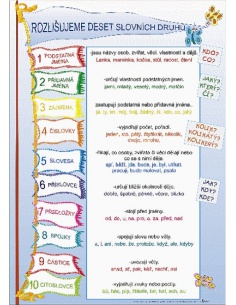 ROZLIŠUJEME DESET SLOVNÍCH DRUHŮ
1 PODSTATNÁ JMÉNA
-jsou názvy osob, zvířat, věcí, vlastností a dějů.
Lenka, maminka, kočka, stůl, radost, čtení
KDO?
CO?
2 PŘÍDAVNÁ JMÉNA
-určují vlastnosti podstatných jmen.
jarní, mladý, veselý, modrý, matčin
JAKÝ?
KTERÝ?
ČÍ?
3 ZÁJMENA
zastupují podstatná nebo přídavná jména.
4 ČÍSLOVKY
-vyjadřují počet, pořadí.
KOLIK?
KOLIKÁTÝ?
5 SLOVESA
-říkají, co osoby, zvířata či věci dělají nebo
co se s nimi děje.
6 PŘÍSLOVCE
-určují bližší okolnosti děje.
dobře, špatně, pěkně, včera, blízko
JAK?
KDY?
KDE?
7 PŘEDLOŽKY
-stojí před jmény.
od, do, u, na, pro, o, za, před, nad
8 SPOJKY
-spojují slova nebo věty.
a, i, ani, nebo, že, protože, když, ale, kdyby
9 ČÁSTICE
-uvozují věty.
10 CITOSLOVCE
-vyjadřují zvuky nebo pocity.